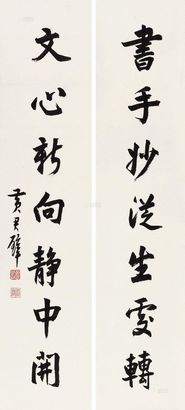 書手妙從生處轉
文心新向靜中開
黃君璧